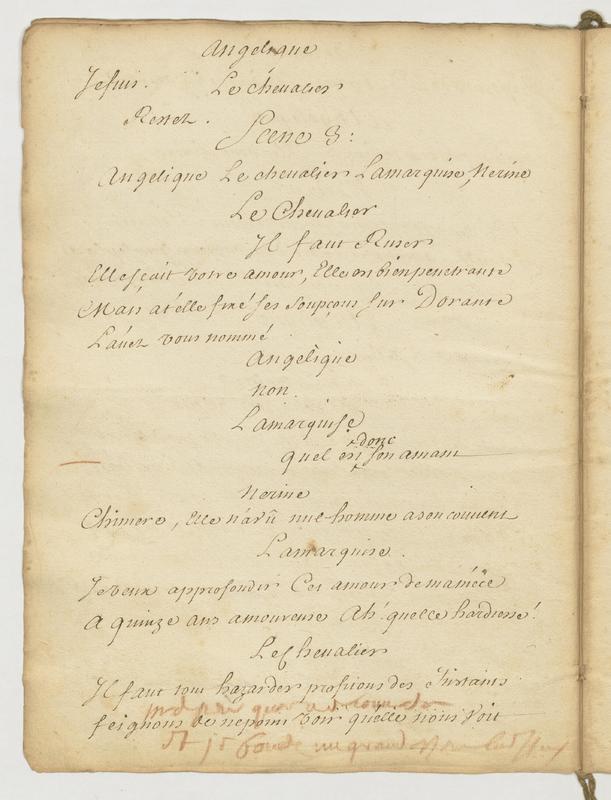 Angelique
Je suis.
Le chevalier
Restez.
Scene 3:
Angelique Le chevalier Lamarquise, Nerine
Le Chevalier
Il faut Ruser
Elle sçait votre amour, Elle est bien penetrante
Mais at'elle fixé ses soupçons sur Dorante
L'avez vous nommé
Angélique
non.
Lamarquise
donc
quel est son amant
Nerine
Chimere, Elle n'a vû nul homme a son couvent
Lamarquise.
Je veux approfondir Cet amour de ma niéce
A quinze ans amoureuse Ah! quelle hardiesse!
Le Chevalier
Il faut tout hazarder profitons des Instants
feignons de ne point voir qu'elle nous voit
Et je un grand